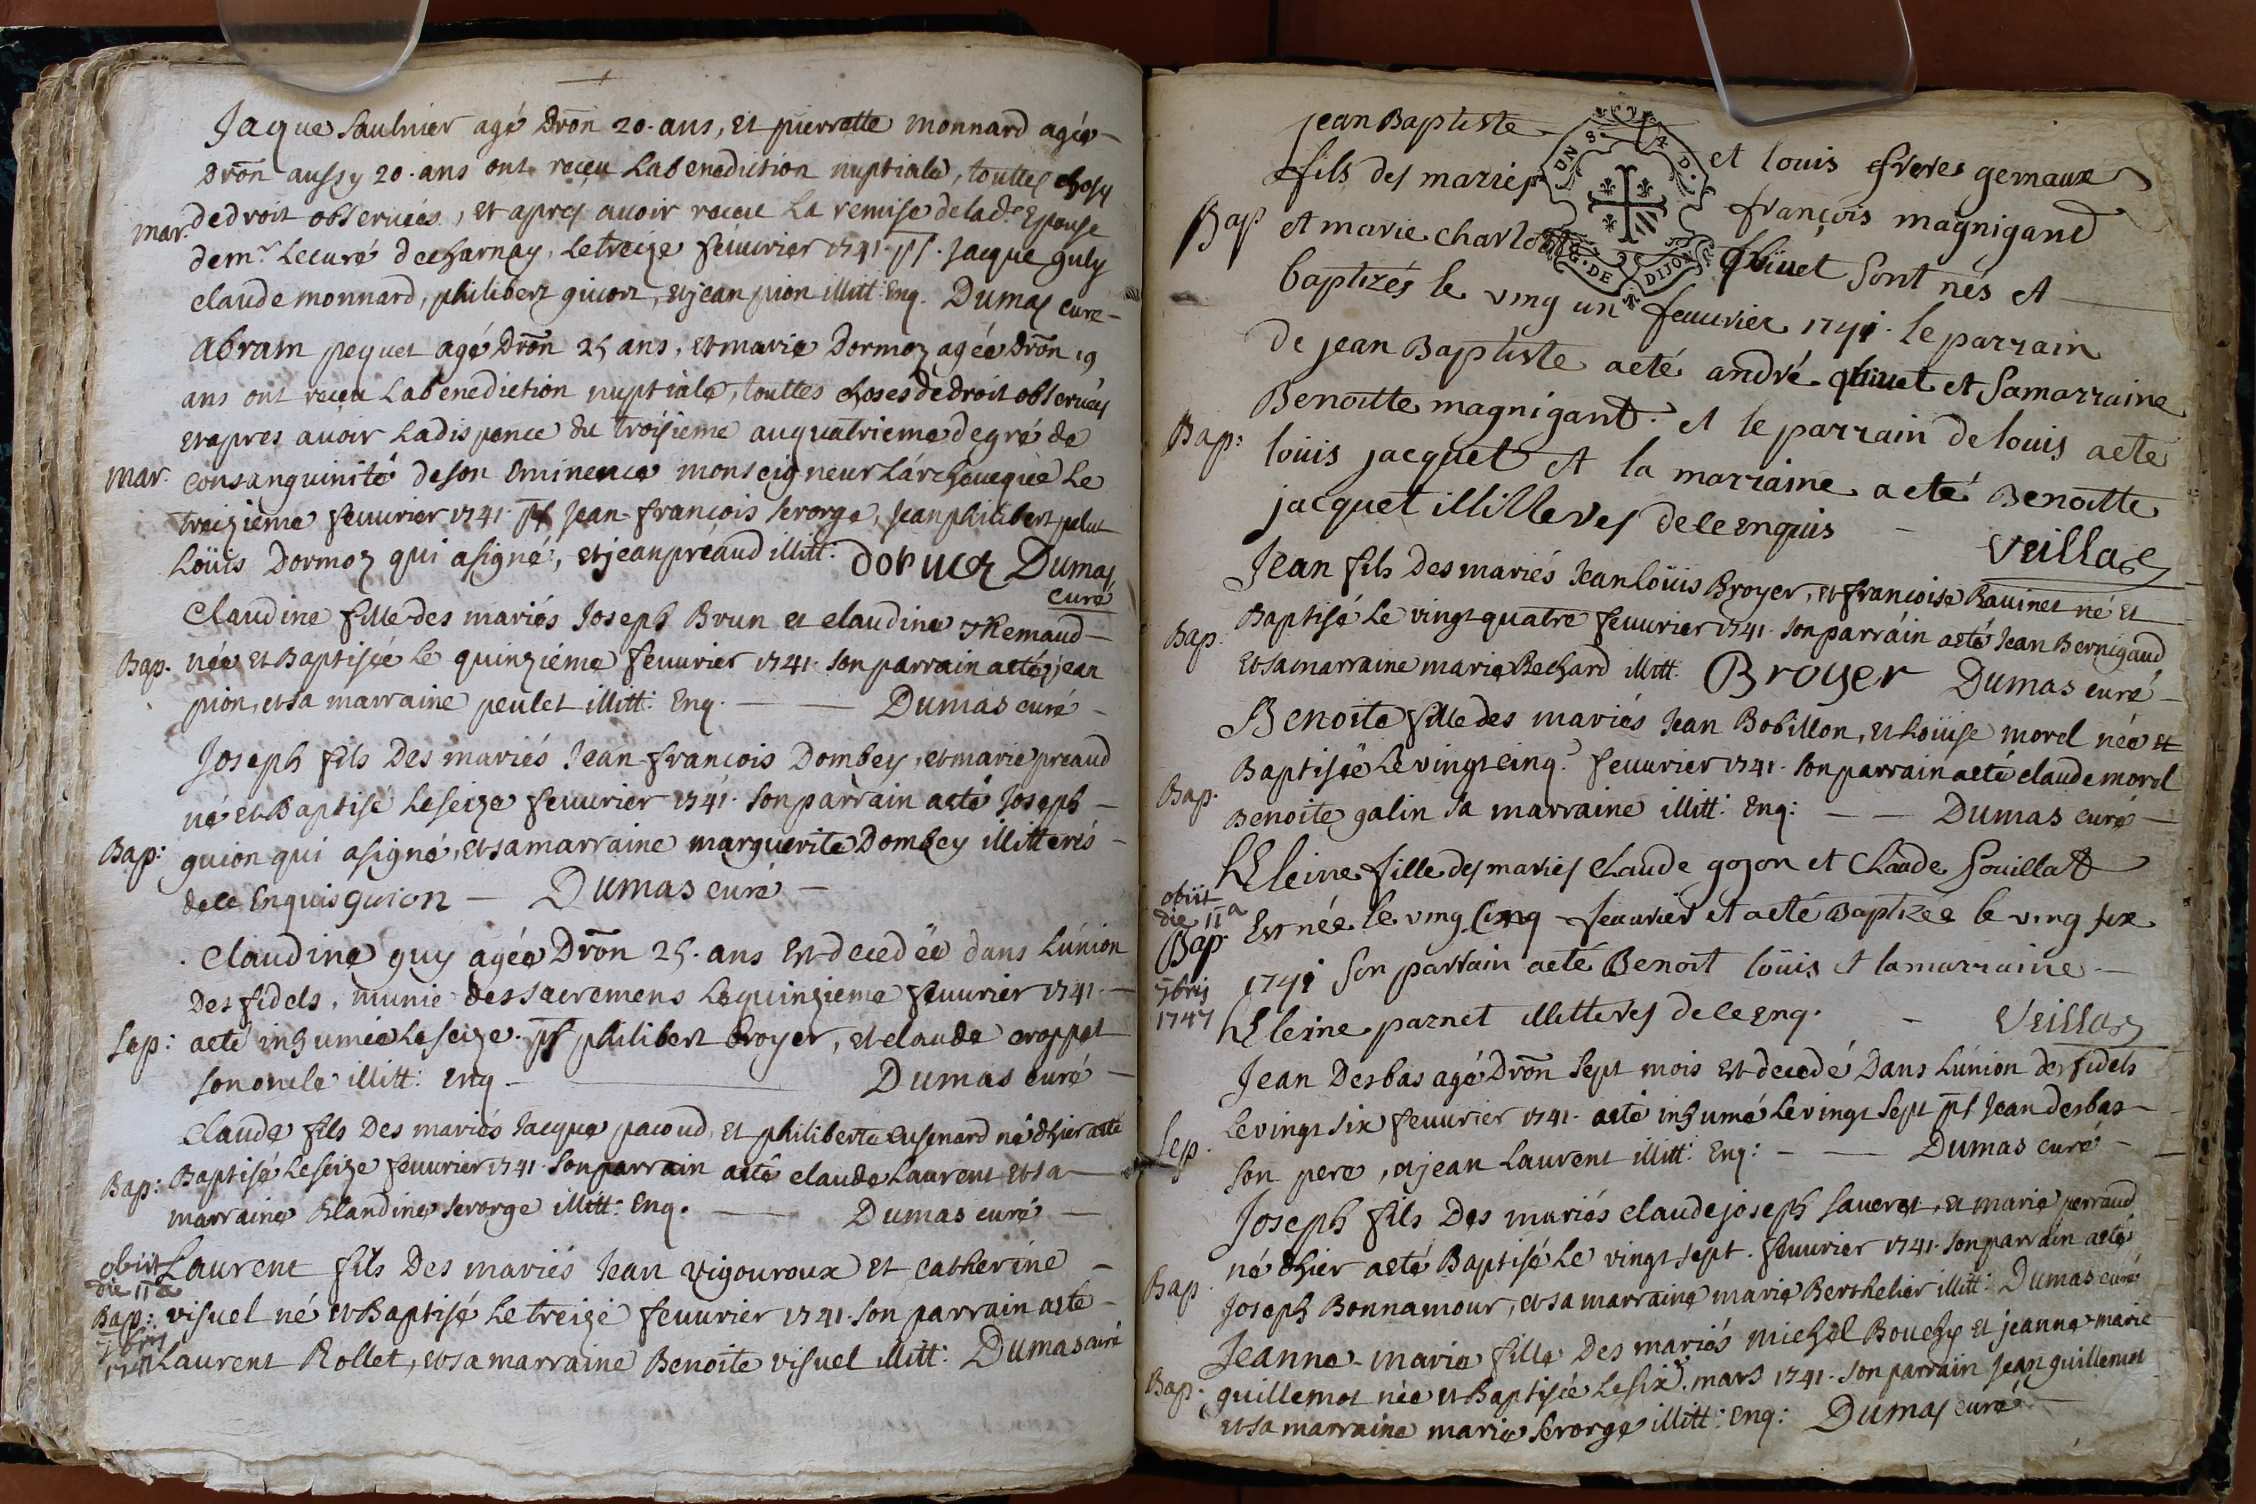 Jaque Saulnier agé Dron 20. ans, et pierrette monnard agée
Dron aussy 20. ans ont reçeu la benediction nuptiale, touttes choses
mar. de droit observées, et apres avoir receu la remise de lad.e Epouse
de m.r le curé de charnay, le treize feuvrier 1741. pt. Jacque guly
claude monnard, philibert guiort, et jean pion illitt. Enq. Dumas curé
Abram pequet agé Dron 25 ans, et marie Dormoz agée Dron 19
ans ont reçeu la benediction nuptiale, touttes choses de droit observées
et apres avoir la dispence du troisieme au quatrieme degré de
mar. consanguinité de son Eminence monseigneur l'archeveque le
treizieme feuvrier 1741. pt. Jean-francois serorge, jean philibert
Loüis Dormoz qui a signé, et jean preaud illitt. Dumas
curé
Claudine fille des mariés Joseph Brun et claudine
Bap. née et Baptisée le quinziéme feuvrier 1741. son parrain a eté jean
pion, et sa marraine peulet illitt: Enq. Dumas curé
Joseph fils Des mariés Jean-francois Dombey, et marie preaud
né et Baptisé le seize feuvrier 1741. son parrain a eté Joseph
Bap: guion qui a signé, et sa marraine marguerite Dombey illitterés
de ce Enquis guion Dumas curé
Claudine guy agée Dron 25. ans Est decedée dans l'union
Des fidels, munie des sacremens le quinzieme feuvrier 1741.
Sep: a eté inhumée le seize. pt philibert Broyer, et claude croppet
son oncle illitt: Enq Dumas curé
Claude fils Des mariés Jacque pacoud, et philiberte né d'hier a eté
Bap: Baptisé le seize feuvrier 1741. son parrain a eté claude Laurent et sa
marraine Blandine serorge illitt: Enq. Dumas curé
obiit
die 11a
Laurent fils Des mariés Jean vigouroux et catherine
Bap: visuel né et Baptisé le treize feuvrier 1741. son parrain a eté
7bris
Laurent Rollet, et sa marraine Benoite visuel illitt: Dumas curé
jean Baptiste et louis freres gemaux
fils des mariés françois magnigand
Bap et marie charlotte sont nés et
baptizés le ving un feuvrier 1741. le parrain
de jean Baptiste a eté andré et sa marraine
Benoitte magnigant. et le parrain de louis a eté
Bap: loüis jacquet et la marraine a eté Benoitte
jacquet illitteres de ce enquis
Jean fils Des mariés Jean Loüis Broyer, et francoise Ravinet né et
Bap. Baptisé le vingt quatre feuvrier 1741. son parrain a eté Jean Bernigaud
et sa marraine marie Bechard illitt. Broyer Dumas curé
Benoite fille des mariés Jean Bobillon, et Loüise morel née et
Bap. Baptisée le vingt cinq.e feuvrier 1741. son parrain a eté claude morel
Benoite galin sa marraine illitt: Enq: Dumas curé
hEleine fille des mariés claude gozon et Claude
obiit
die 11a
Bap. Est née le ving Cinq feuvrier et a eté Baptizée le ving six
7bris
1747
1741 son parrain a eté Benoit loüis et la marraine
hEleine parnet illitteres de ce enq.
Jean Desbas agé Dron sept mois Est decedé Dans l'union des fidels
le vingt six feuvrier 1741. a eté inhumé le vingt sept pt Jean desbas
Sep. son pere, et jean Laurent illitt: Enq: Dumas curé
Joseph fils Des mariés claude joseph saveret, et marie perraud
Bap. né d'hier a eté Baptisé le vingt sept. feuvrier 1741. son parrain a eté
Joseph Bonnamour, et sa marraine marie Berthelier illitt: Dumas curé
Jeanne-marie fille Des mariés michel Bouchy et jeanne-marie
Bap. guillemot née et Baptisée le six.e mars 1741. son parrain Jean guillemot
et sa marraine marie serorge illitt: Enq: Dumas curé